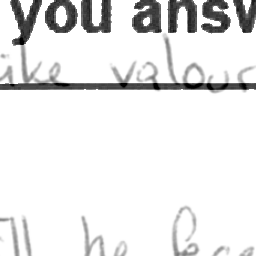 you answ
ike valour
ill be